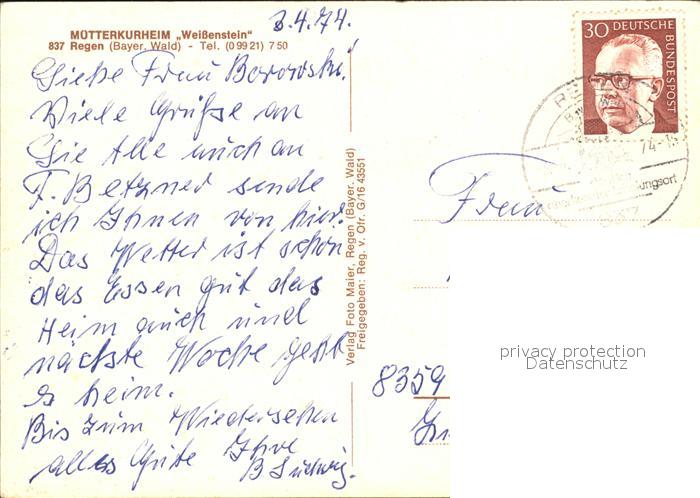 3.4.74.
MÜTTERKURHEIM „Weißenstein"
837 Regen (Bayer. Wald) - Tel. (0 99 21) 7 50
Liebe Frau Borowski!
Viele Grüße an
Sie Alle auch an
F. Betzner sende
ich Ihnen von hier.
Das Wetter ist schön
das Essen gut das
Heim auch und
nächste Woche geht
es heim.
Bis zum Wiedersehen
alles Gute Ihre
B Ludwig.
Verlag Foto Maier, Regen (Bayer. Wald)
Freigegeben: Reg. v. Ofr. G/16 43551
30 DEUTSCHE
BUNDESPOST
74-15
ungsort
Frau
privacy protection
Datenschutz
8359